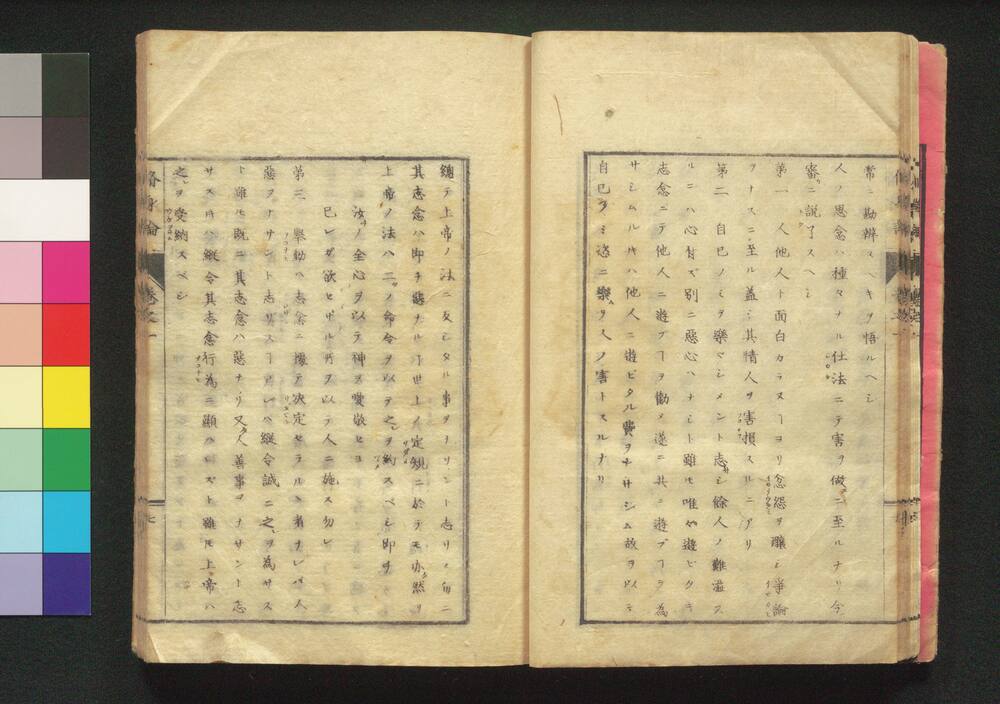 常ニ勘辨スヘキヲ悟ルヘシ
人ノ思念ハ種々ナル仕法ニテ害ヲ做ニ至ルナリ今
審ニ説了スヘシ
第一 人他人ト面白カラスヨリ忿怨ヲ醸シ爭論
ヲナスニ至ル蓋シ其情人ヲ害損スルニアリ
第二 自已ノミヲ樂マシメント志シ餘人ノ難澁ス
ルニハ心付ズ別ニ惡心ハナシト雖モ唯遊ビタキ
志念ニテ他人ニ遊ブヿヲ勸メ遂ニ共ニ遊ブヿヲ為
サシムル片ハ他人ニ遊ビタル費ヲナサシム故ヲ以テ
自已ノミ恣ニ樂ヲスノ害トスルナリ
總テ上帝ノ法ニ反シタル事ヲナリント志リシ而ニ
其志念ハ即チ惡ナル片世上ノ定規ニ於テモ亦然ヲ
上帝ノ法ハ二ノ命令ヲ以テ之ヲ約スベシ即チ
汝ノ全心ヲ以テ神ヲ愛敬セヨ
已レガ欲セザル所ヲ以テ人ニ施ス勿レ
第三 擧動ハ志念ニ據テ决定セラルヽ者ナレバ人
惡ヲナサント志リスヿアレハ縱令誠ニ之ヲ為サス
ト雖モ既ニ其志念ハ惡ナリ又人善事ヲナサント志
サス片ハ縱令其志念行為ニ顕ハレズト雖モ上帝ハ
之ヲ受納スベシ